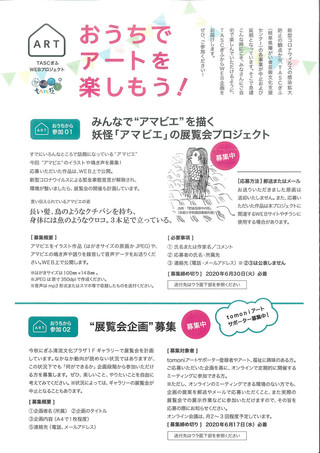 ART
TASCぎふ
WEBプロジェクト
おうちで
アートを
楽しもう！
ART
おうちから
参加 01
みんなで“アマビエ”を描く
妖怪「アマビエ」の展覧会プロジェクト
募集中
すでにいろんなところで話題になっている“アマビエ”
今回“アマビエ”のイラストや鳴き声を募集！
応募いただいた作品は、WEB上で公開。
新型コロナウイルスによる緊急事態宣言が解除され、
環境が整いましたら、展覧会の開催も計画しています。
言い伝えられているアマビエの姿
長い髪、鳥のようなクチバシを持ち、
身体には魚のようなウロコ。3本足で立っている。
【応募方法】郵送またはメール
お送りいただきました原画は
返却いたしません。また、応募
いただいた作品は本プロジェクト
に関連するWEBサイトやチラシに
使用する場合があります。
【募集概要】
アマビエをイラスト作品（はがきサイズの原画かJPEG）や、
アマビエの鳴き声や語りを録音して音声データをお送りくだ
さい。WEB上で公開します。
※はがきサイズは100㎜×148㎜。
※JPEGは数で350dpiで作成ください。
※音声はmp3形式またはスマホ等で収録したものを送付ください。
【必要事項】
① 氏名または作家名／コメント
② 応募者の氏名・所属先
③ 連絡先（電話・メールアドレス）※②③は公表しません
【募集締め切り】2020年6月30日（火）必着
送付先はウラ面下部を参照ください。
ART
おうちから
参加 02
“展覧会企画”募集
募集中
tomoniアート
サポーター募集中！
今秋にぎふ清流文化プラザ1Fギャラリーで展覧会を計画
しています。なかなか動向が読めない状況ではありますが、
この状況下でも“何ができるか”企画段階から参加いただけ
る方を募集します。ぜひ、楽しいこと、やりたいことを自由に
考えてみてください。※状況によっては、ギャラリーの展覧会が
中止となることもあります。
【募集概要】
①企画者名（所属） ②企画のタイトル
③企画内容（A4で1枚程度）
⑤連絡先（電話、メールアドレス）
【募集対象者】
tomoniアートサポーター登録者やアート、福祉に興味のある方。
ご応募いただいた企画を基に、オンラインで定期的に開催する
ミーティングに参加できる方。
※ただし、オンラインのミーティングできる環境のない方でも、
企画の提案を郵送やメールで応募いただくこと、また実際の
展覧会での展示作業などに参加いただけますので、その旨を
応募の際にお知らせください。
オンライン会議は、月2〜3回程度予定しています。
【募集締め切り】2020年6月17日（水）必着
送付先はウラ面下部を参照ください。